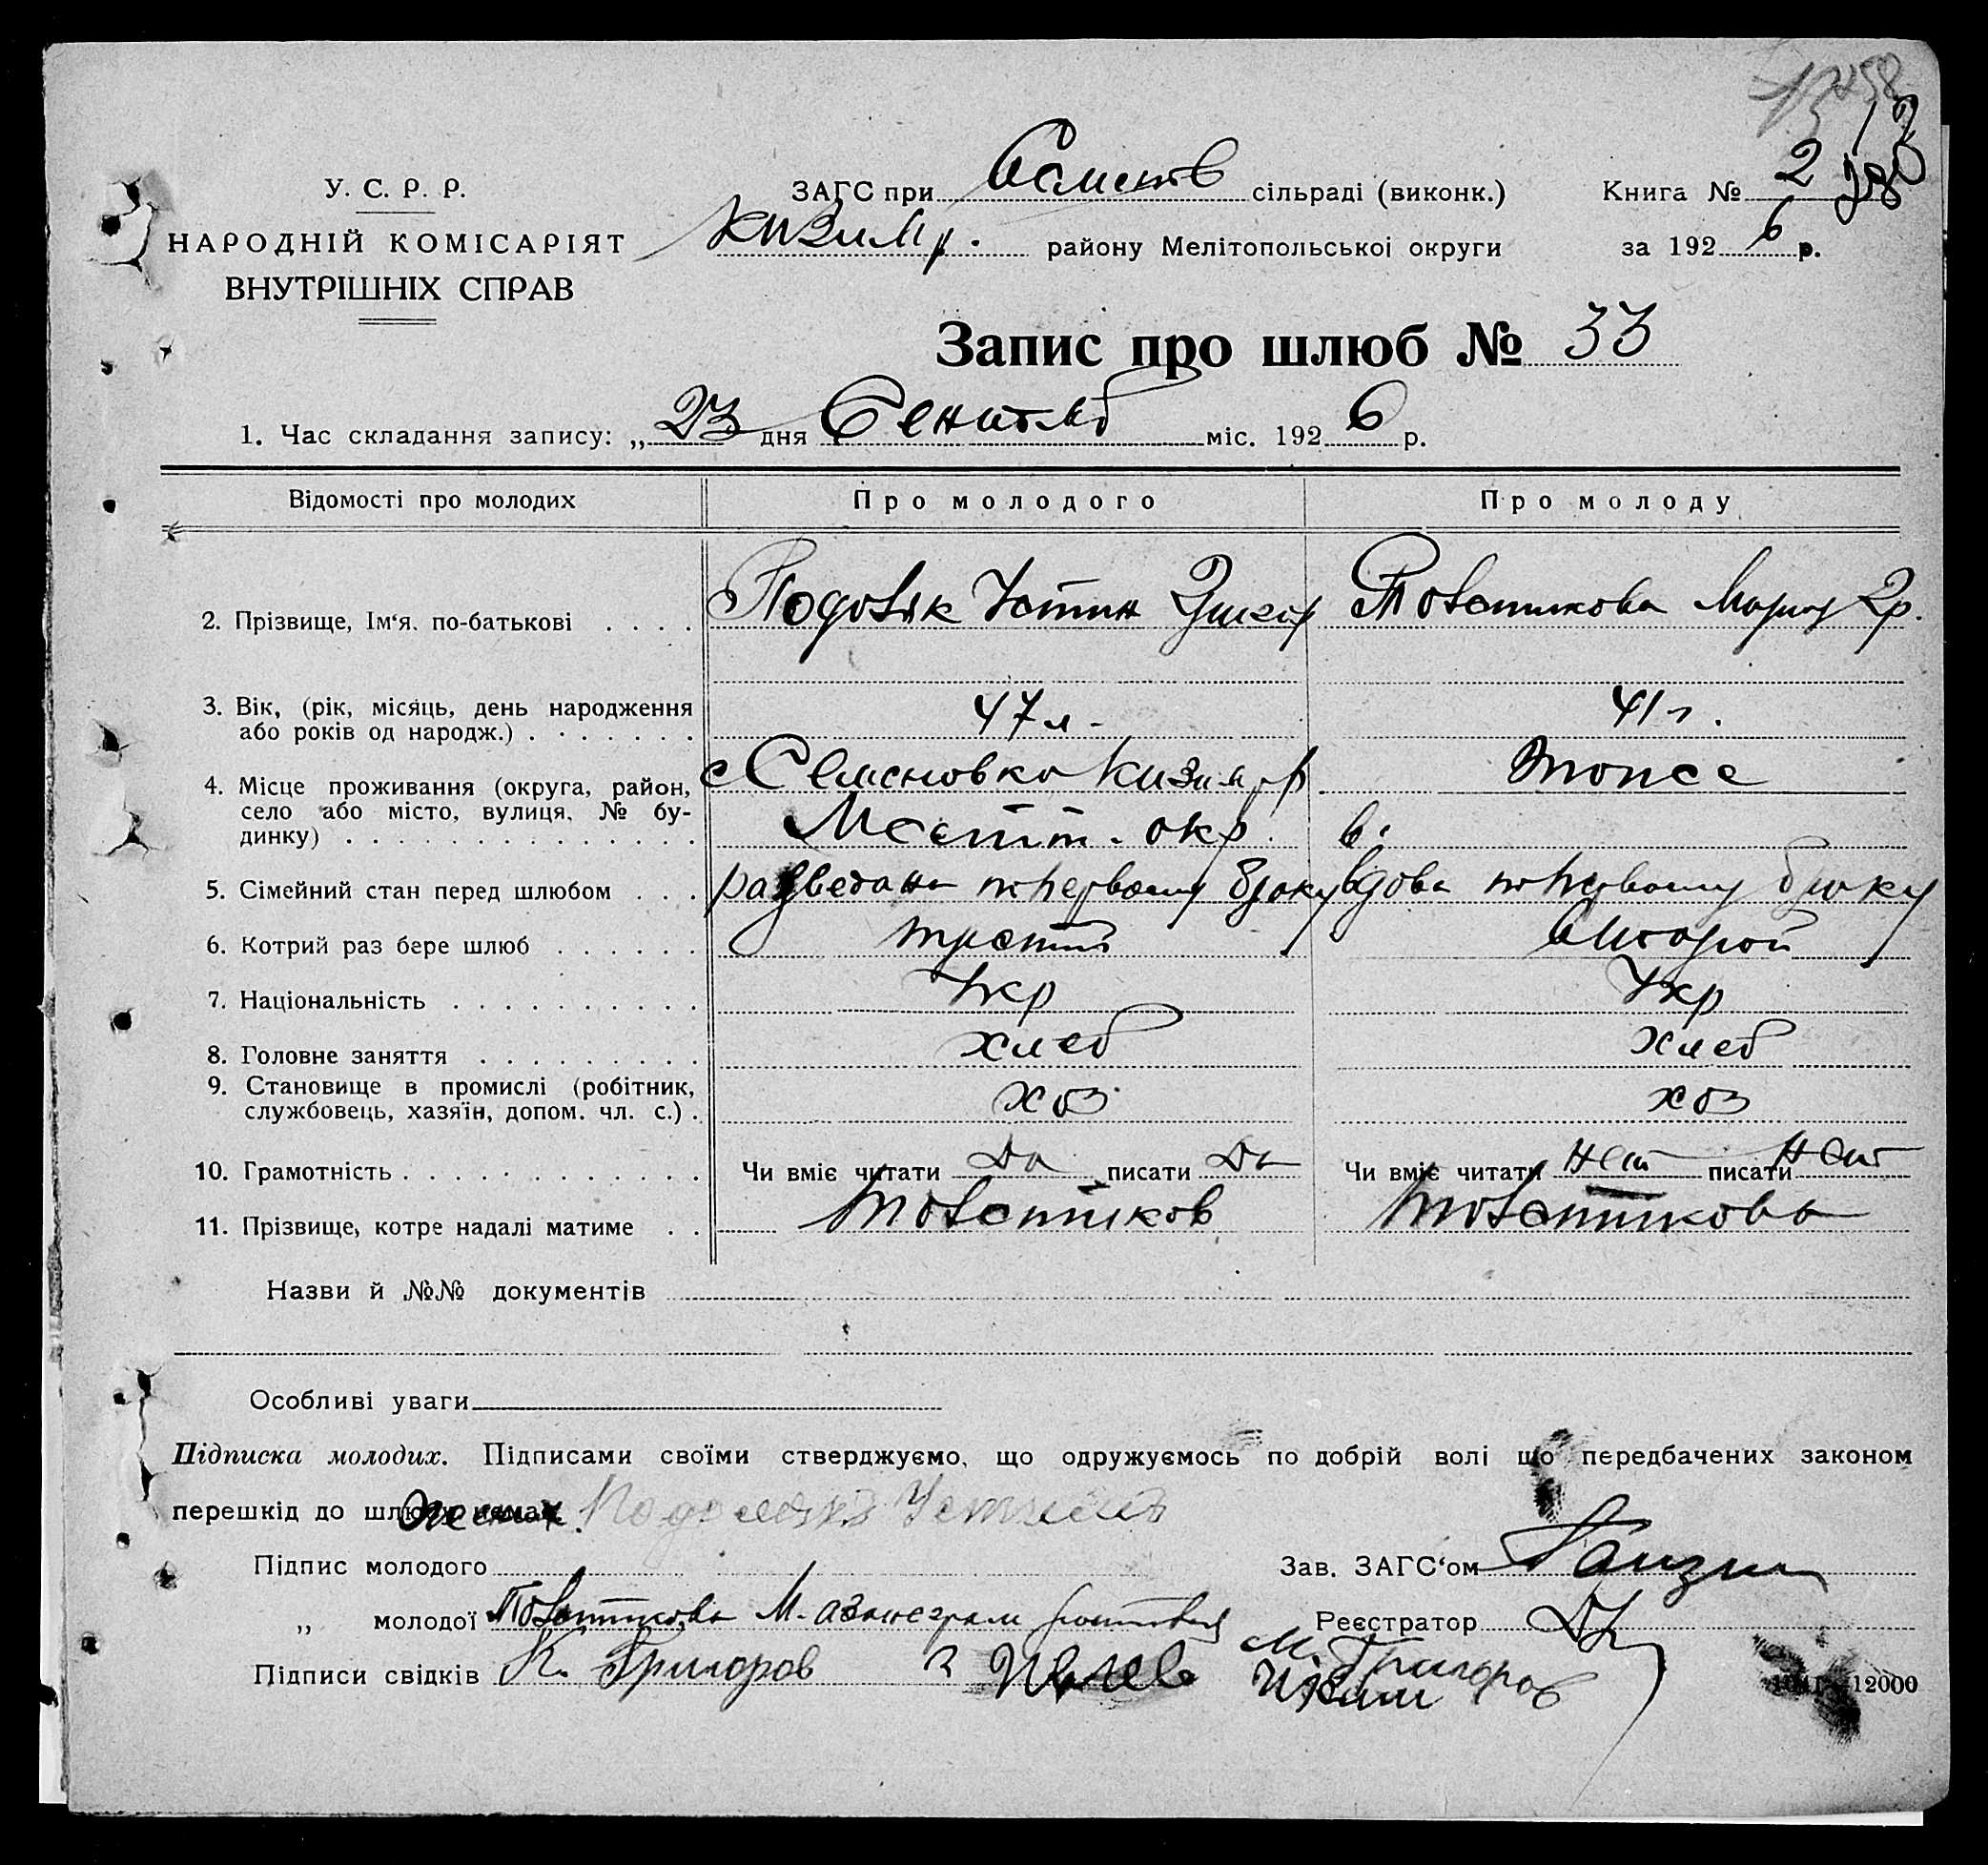 У. С. Р. Р.
НАРОДНІЙ КОМІСАРІЯТ
ВНУТРІШНІХ СПРАВ
ЗАГС при сільраді (виконк.)
Кизиляр. району Мелітопольської округи
Книга № 2
за 1926 р.
Запис про шлюб № 33
1. Час складання запису: „23 дня Сентяб міс. 1926 р.
Відомості про молодих
Про молодого
Про молоду
2. Прізвище, Ім'я. по-батькові . . . . Устин Товстикова Мария Гр.
3. Вік, (рік, місяць, день народження
або років од народж.) . . . . . . . 47 л - 41 г.
4. Місце проживання (округа, район,
село або місто, вулиця, № бу-
динку) . . . . . . . . . . . . . .
с Семеновка Кизиляр тоже
Мелит. окр.
5. Сімейний стан перед шлюбом . . . по первому браку вдова по первому браку
6. Котрий раз бере шлюб . . . . . . третий второй
7. Національність . . . . . . . . . . Укр Укр
8. Головне заняття . . . . . . . . . хлеб хлеб
9. Становище в промислі (робітник,
службовець, хазяїн, допом. чл. с.) . хоз хоз
10. Грамотність . . . . . . . . . . . . Чи вміє читати да писати да Чи вміє читати нет писати нет
11. Прізвище, котре надалі матиме . . Товстиков Товстикова
Назви й №№ документів
Особливі уваги
Підписка молодих. Підписами своїми стверджуємо, що одружуємось по добрій волі що передбачених законом
перешкід до шлюбу немає.
Підпис молодого
Зав. ЗАГС'ом
„ молодої Товстикова М.
Реєстратор
Підписи свідків К. Григоров М. Григоров
12000